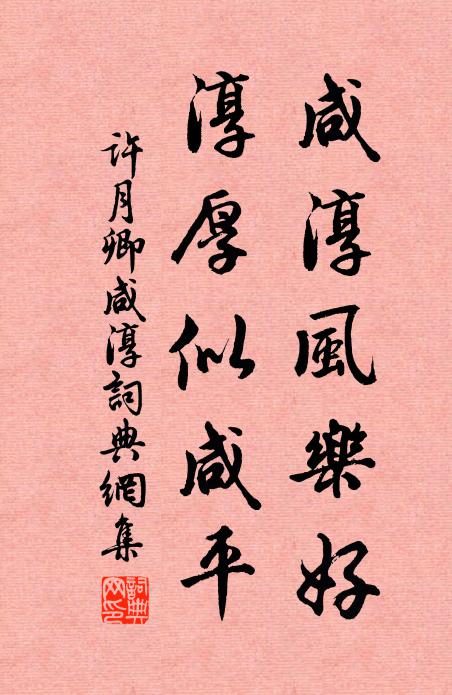 咸淳風樂好
淳厚似咸平
許月卿咸淳詞典網集
詞典
网印